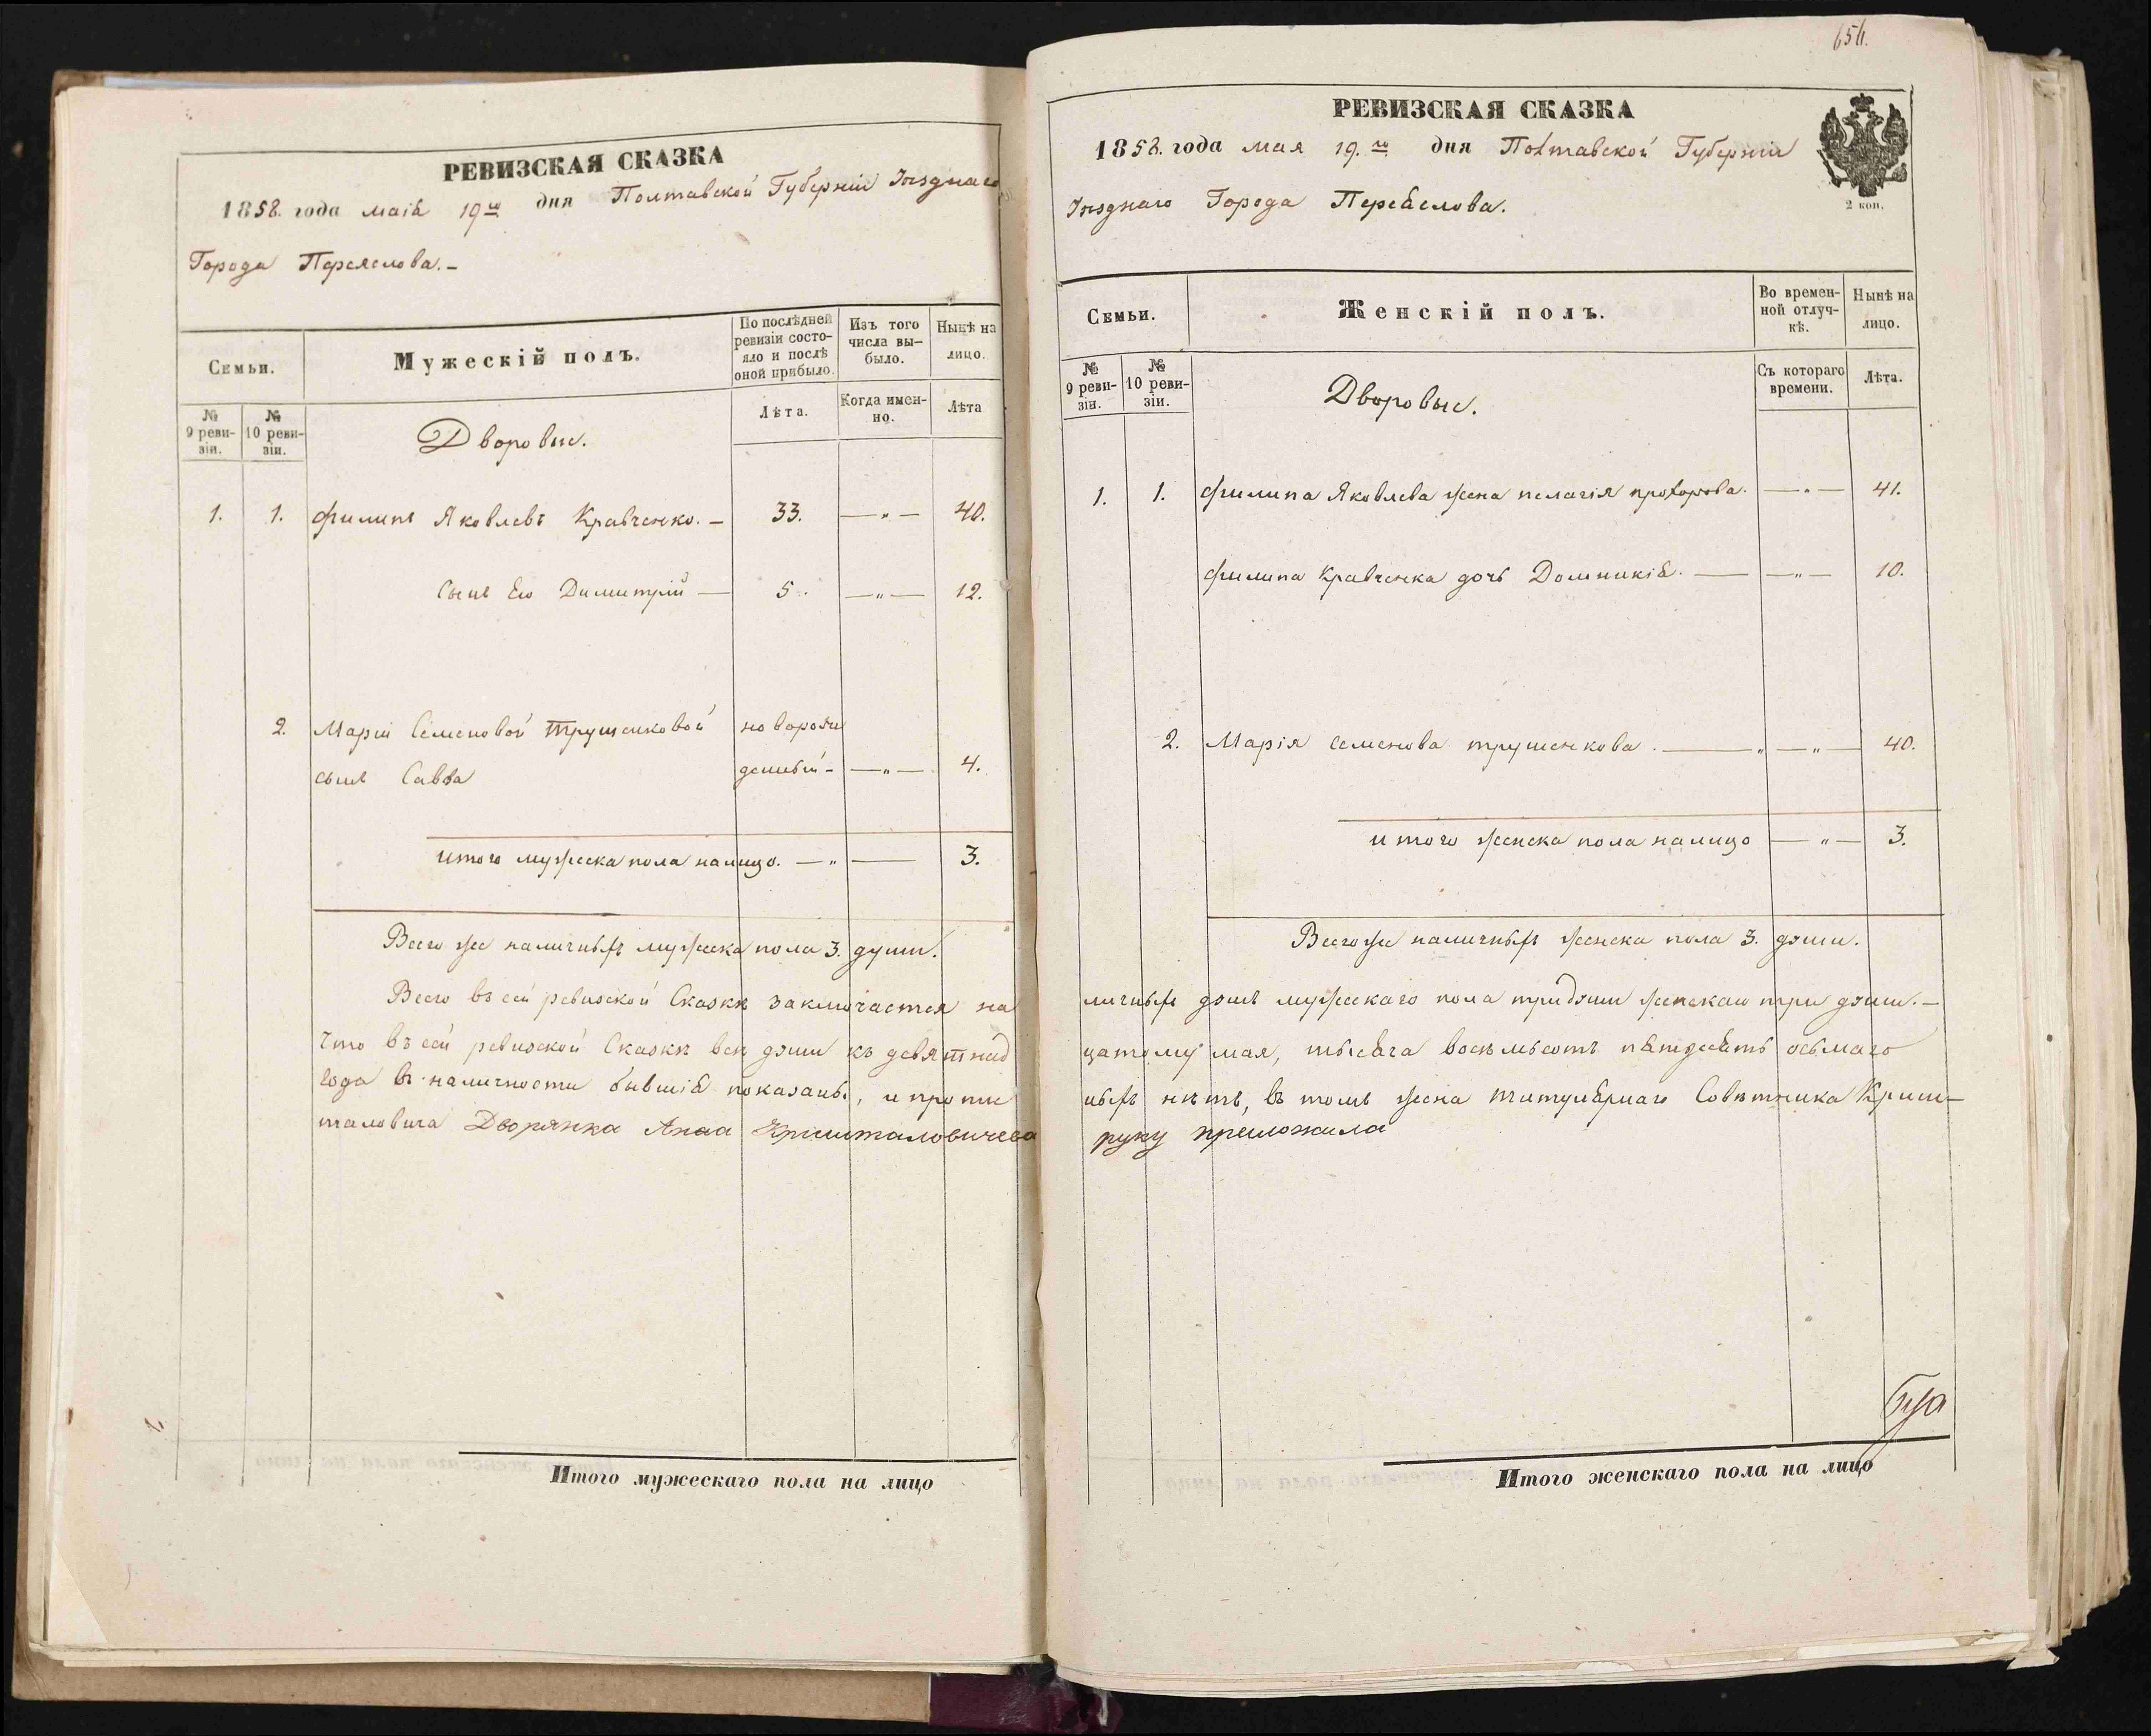 РЕВИЗСКАЯ СКАЗКА
1858. года маія 19го дня Полтавской Губерніи Уѣзднаго
Города Переяслова.-
Семьи.
Мужескій полъ.
По послѣдней ревизіи состояло и послѣ оной прибыло.
Изъ того числа выбыло.
Нынѣ на лицо.
№ 9 ревизіи.
№ 10 ревизіи.
Дворовые.
Лѣта.
Когда именно.
Лѣта
1. 1. Филипъ Яковлевъ Кравченко. — 33. — „ — 40.
Сынъ Его Димитрій — 5. — „ — 12.
2. Маріи Семеновой Трушенковой новорож
сынъ Савва денный - — „ — 4.
итого мужеска пола налицо. — „ — 3.
Всего же наличныхъ мужеска пола 3. души.
Всего въ сей ревизской Сказкѣ заключается на
Что въ сей ревизской Сказкѣ всѣ души къ девятнад
года въ наличности бывшія показаны, и пропи
таловича Дворянка Анна Кришталовичева
Итого мужескаго пола на лицо
656.
РЕВИЗСКАЯ СКАЗКА
1858. года мая 19.го дня Полтавской Губерніи
Уѣзднаго Города Переяслова.
2 коп.
Семьи.
Женскій полъ.
Во временной отлучкѣ.
Нынѣ на лицо.
№ 9 ревизіи.
№ 10 ревизіи.
Дворовые.
Съ котораго времени.
Лѣта.
1. 1. Филипа Яковлева жена пелагія прохорова. — „ — 41.
Филипа Кравченка дочь Домникія. — — „ — 10.
2. Марія семенова трушенкова. — „ — „ — 40.
итого женска пола налицо — „ — 3.
Всего же наличныхъ женска пола 3. души.
личныхъ душъ мужескаго пола три души женскаго три души.—
цатому мая, тысяча восемьсотъ пятдесятъ осьмаго
ныхъ нѣтъ, въ томъ жена титулярнаго Совѣтника Криш-
руку приложила
Итого женскаго пола на лицо